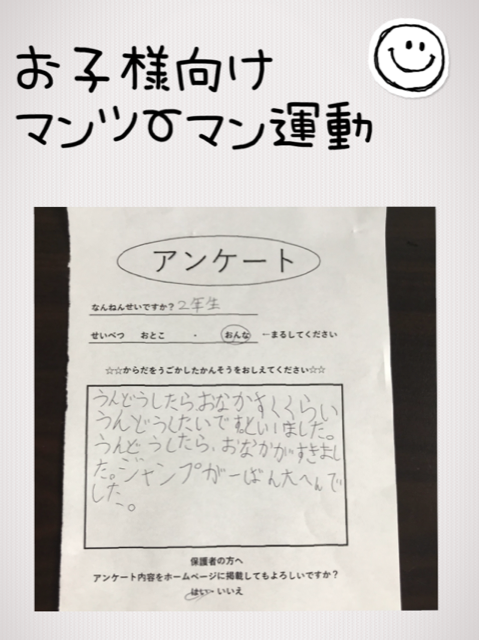 お子様向け
マンツウマン運動
アンケート
なんねんせいですか？2年生
せいべつ おとこ ・ おんな ←まるしてください
☆☆からだをうごかしたかんそうをおしえてください☆☆
うんどうしたらおなかすくくらい
うんどうしたいですといいました。
うんどうしたら、おなかがすきまし
た。ジャンプが一ばん大へんで
した。
保護者の方へ
アンケート内容をホームページに掲載してもよろしいですか？
はい・いいえ